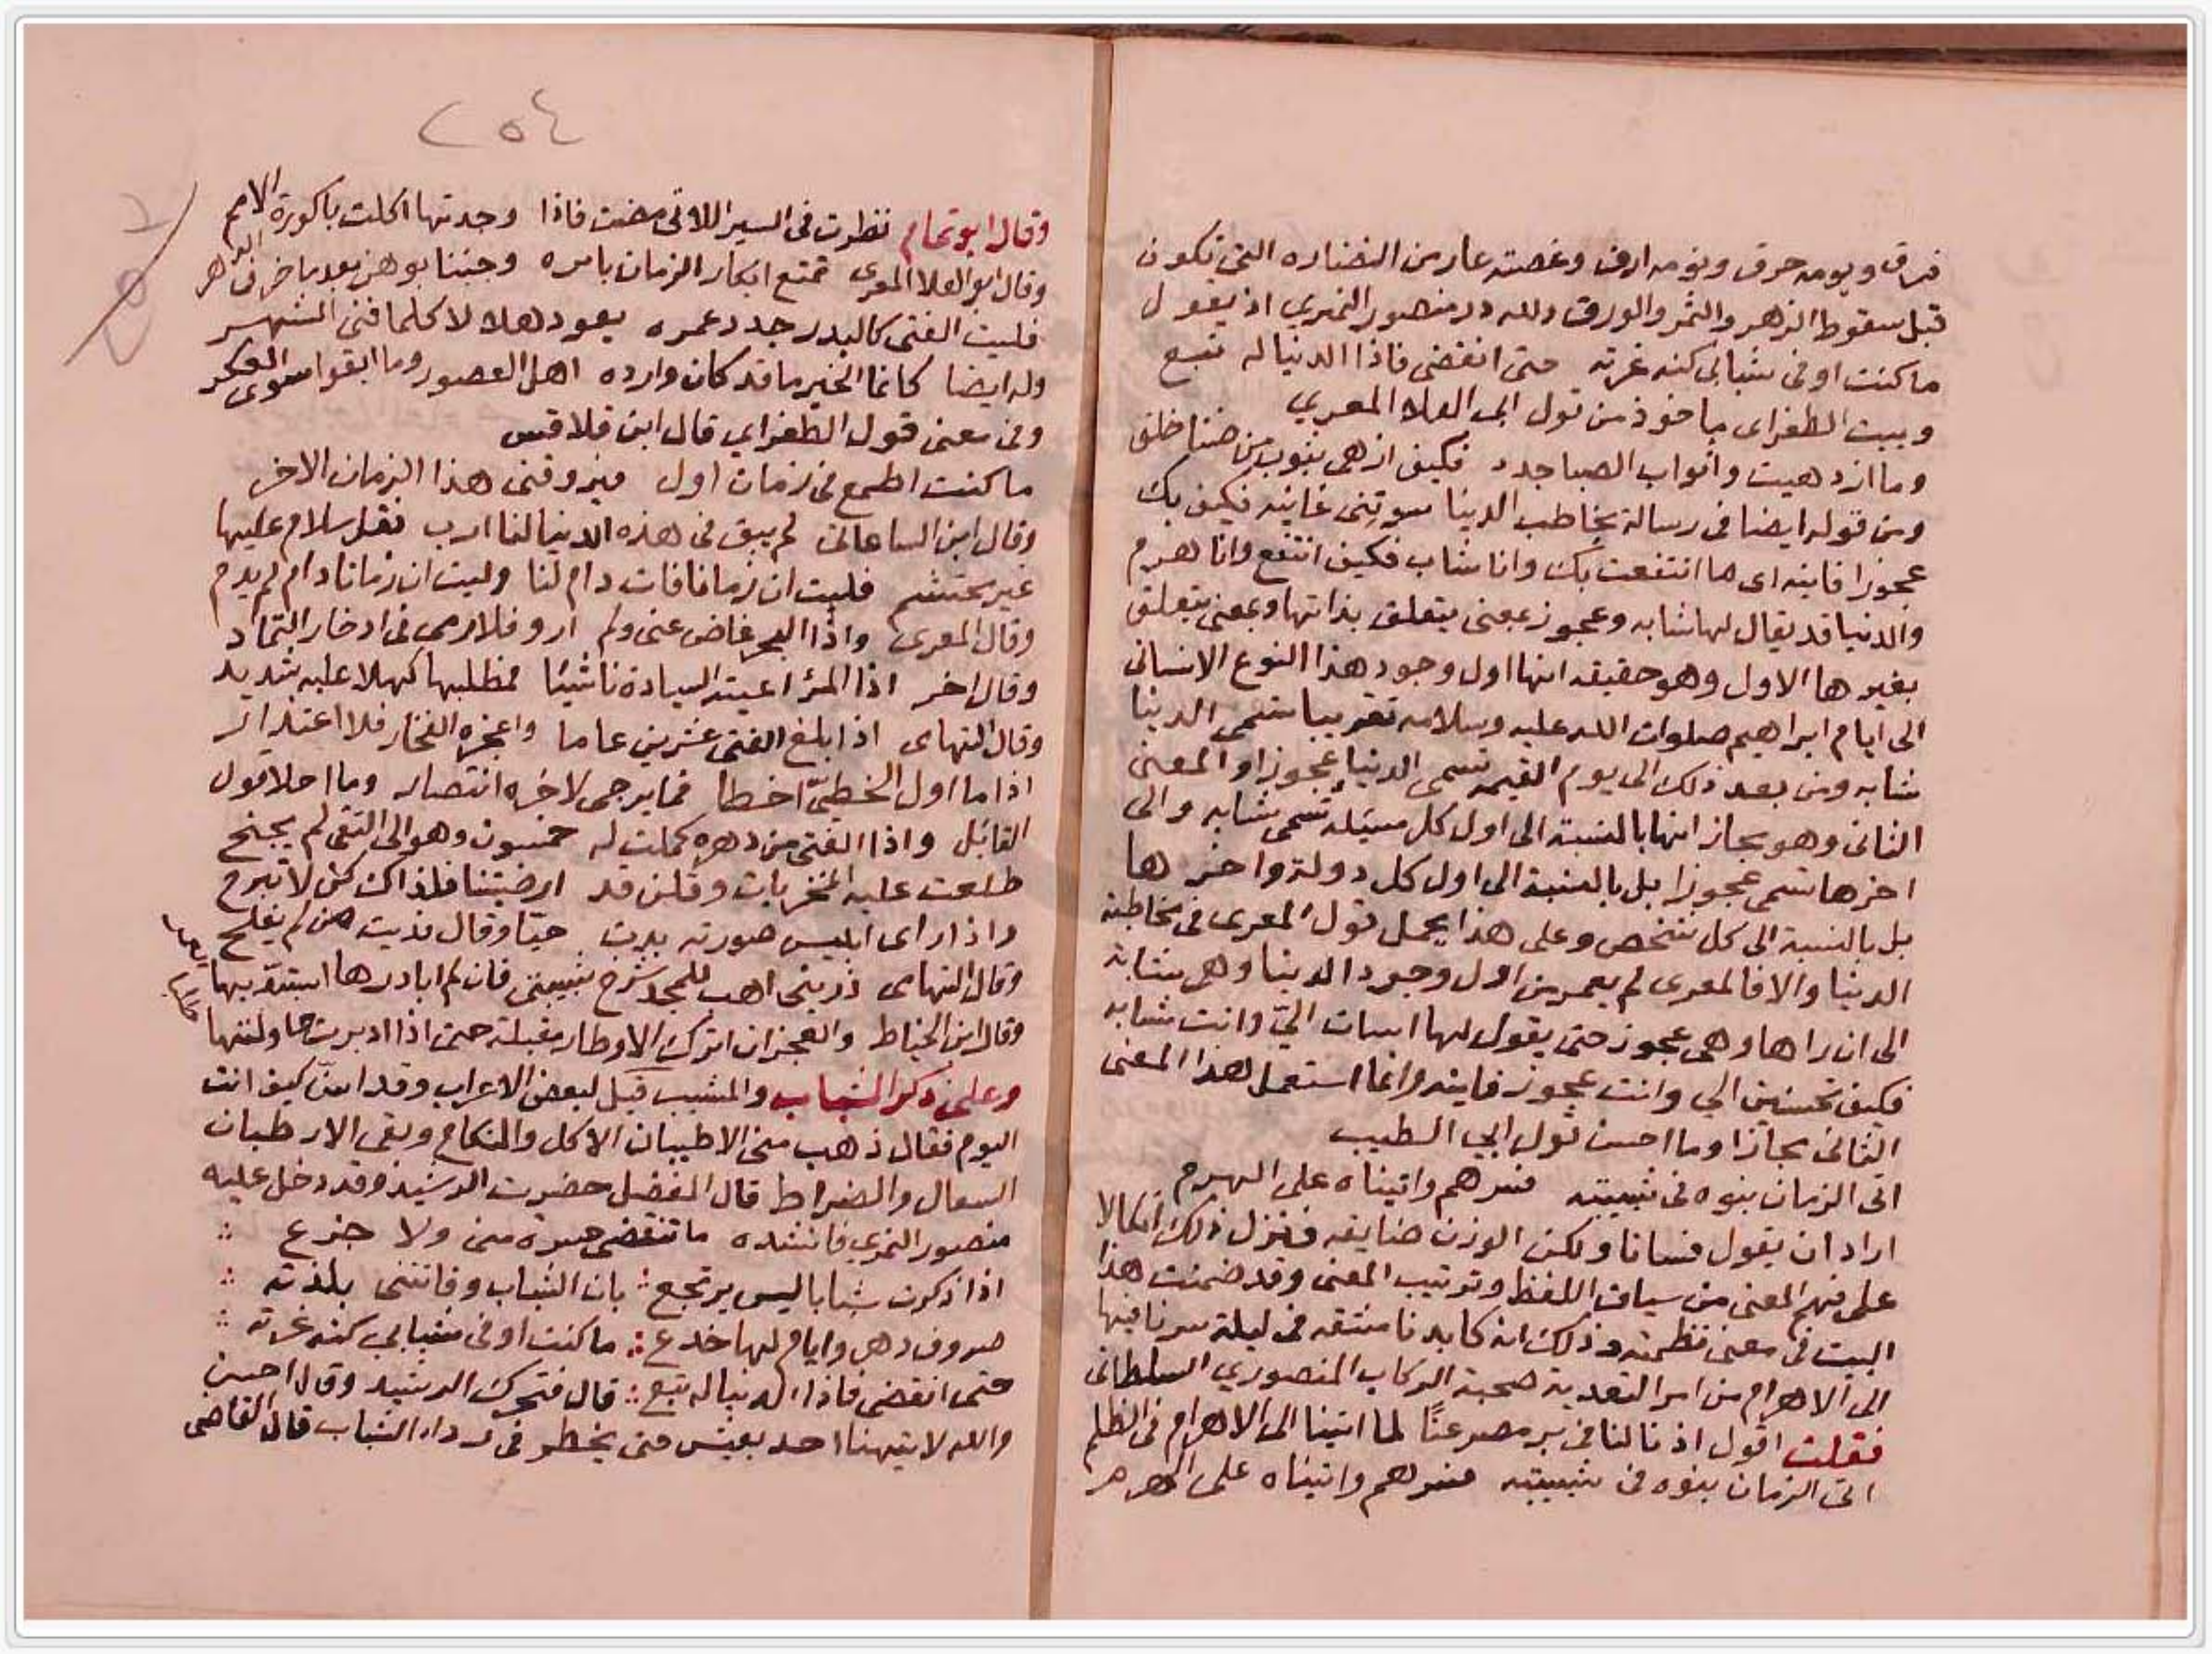 فرق ويومه حرق ونومه ارق وغصنه عار من النضاره التى تكون
قبل سقوط الزهر والثمر والورق ولله در منصور النمري اذ يقول
ما كنت اوفى شبابى كنه غرته حتى انقضى فاذا الدنيا له تبع
وبيت الطغراى ماخوذ من قول ابى العلا المعري
وما ازدهيت واثواب الصبا جدد فكيف ازهى بثوب من ضنا خلق
ومن قوله ايضا فى رسالة يخاطب الدنيا سوتنى غانيه فكيف بك
عجوزا فانيه اى ما انتفعت بك وانا شاب فكيف انتفع وانا هرم
والدنيا قد يقال لها شابه وعجوز بمعنى يتعلق بذاتها وبمعنى يتعلق
بغيرها الاول وهو حقيقه انها اول وجود هذا النوع الانسانى
الى ايام ابراهيم صلوات الله عليه وسلامه تقريبا تسمى الدنيا
شابه ومن بعد ذلك الى يوم القيمه تسمى الدنيا عجوزا والمعنى
الثانى وهو مجاز انها بالنسبة الى اول كل تسمى شابه والى
اخرها تسمى عجوزا بل بالنسبة الى اول كل دولة واخرها
بل بالنسبة الى كل شخص وعلى هذا يحمل قول المعرى فى مخاطبة
الدنيا والا فالمعرى لم يعمر من اول وجود الدنيا وهى شابة
الى ان راها وهى عجوز حتى يقول لها اسات الىّ وانت شابه
فكيف تحسنين الى وانت عجوز فانيه وانما استعمل هذا المعنى
الثانى مجازا وما احسن قول ابي الطيب
اتى الزمان بنوه فى شبيبته فسرهم واتيناه على الهرم
اراد ان يقول فسانا ولكن الوزن ضايقه فنزل ذلك اتكالا
على فهم المعنى من سياق اللفظ وترتيب المعنى وقد ضمنت هذا
البيت فى معنى نظمته وذلك انه كابدنا مشقه فى ليلة سرنا فيها
الى الاهرام من امر التعدية صحبة الركاب المنصوري السلطانى
فقلت اقول اذ نالنا فى بر مصر عنًا لما اتينا الى الاهرام فى الظلم
اتى الزمان بنوه فى شبيبته فسرهم واتيناه على الهرم
٢٥٤
وقال ابو تمام نظرت فى السير اللاتى مضت فاذا وجدتها اكلت باكورة الامم
وقال ابو العلا المعرى تمتع ابكار الزمان بامره وجئنا بوهن بعد ما خرف الدهر
فليت الفتى كالبدر جدد عمره يعود هلالا كلما فنى الشهر
وله ايضا كانما الخير ما قد كان وارده اهل العصور وما ابقوا سوى العكر
وفى معنى قول الطغراي قال ابن قلاقس
ما كنت اطمع فى زمان اول فيروقنى هذا الزمان الاخر
وقال ابن الساعاتى لم يبق فى هذه الدنيا لنا ارب فقل سلام عليها
غير محتشم فليت ان زمانا فات دام لنا وليت ان زمانا دام لم يدم
وقال المعرى واذا البحر غاض عنى ولم ارو فلا رى فى ادخار الثماد
وقال اخر اذا المرؤ اعيته السيادة ناشئا فمطلبها كهلا عليه شديد
وقال التهامى اذا بلغ الفتى عشرين عاما واعجزه الفخار فلا اعتذار
اذا ما اول الخطىّ اخطا فما يرجى لاخره انتصار وما احلا قول
القائل واذا الفتى من دهره كملت له خمسون وهو الى التقى لم يجنح
طلعت عليه المخزيات وقلن قد ارضيتنا فلذاك كن لا تبرح
واذا راى ابليس صورته بدت حيّا وقال فديت من لم يفلح
وقال التهامى ذرينى اهب للمجد شرخ شبيبتى فان لم ابادرها استبدّ بها
وقال ابن الخياط والعجز ان اترك الاوطار مقبلة حتى اذا ادبرت حاولتها
وعلى ذكر الشباب والمشيب قيل لبعض الاعراب وقد اسنّ كيف انت
اليوم فقال ذهب منى الاطيبان الاكل والنكاح وبقى الارطبان
السعال والضراط قال المفضل حضرت الرشيد وقد دخل عليه
منصور النمري فانشده ما تنقضى حسرة منى ولا جزع
اذا ذكرت شبابا ليس يرتجع بان الشباب وفاتتنى بلذته
صروف دهر وايام لها خدع ما كنت اوفى شبابى كنه غرته
حتى انقضى فاذا الدنيا له تبع قال فتحرك الرشيد وقال احسن
والله لا يتهنا احد بعيش حتى يخطر فى رداء الشباب قال القاضى